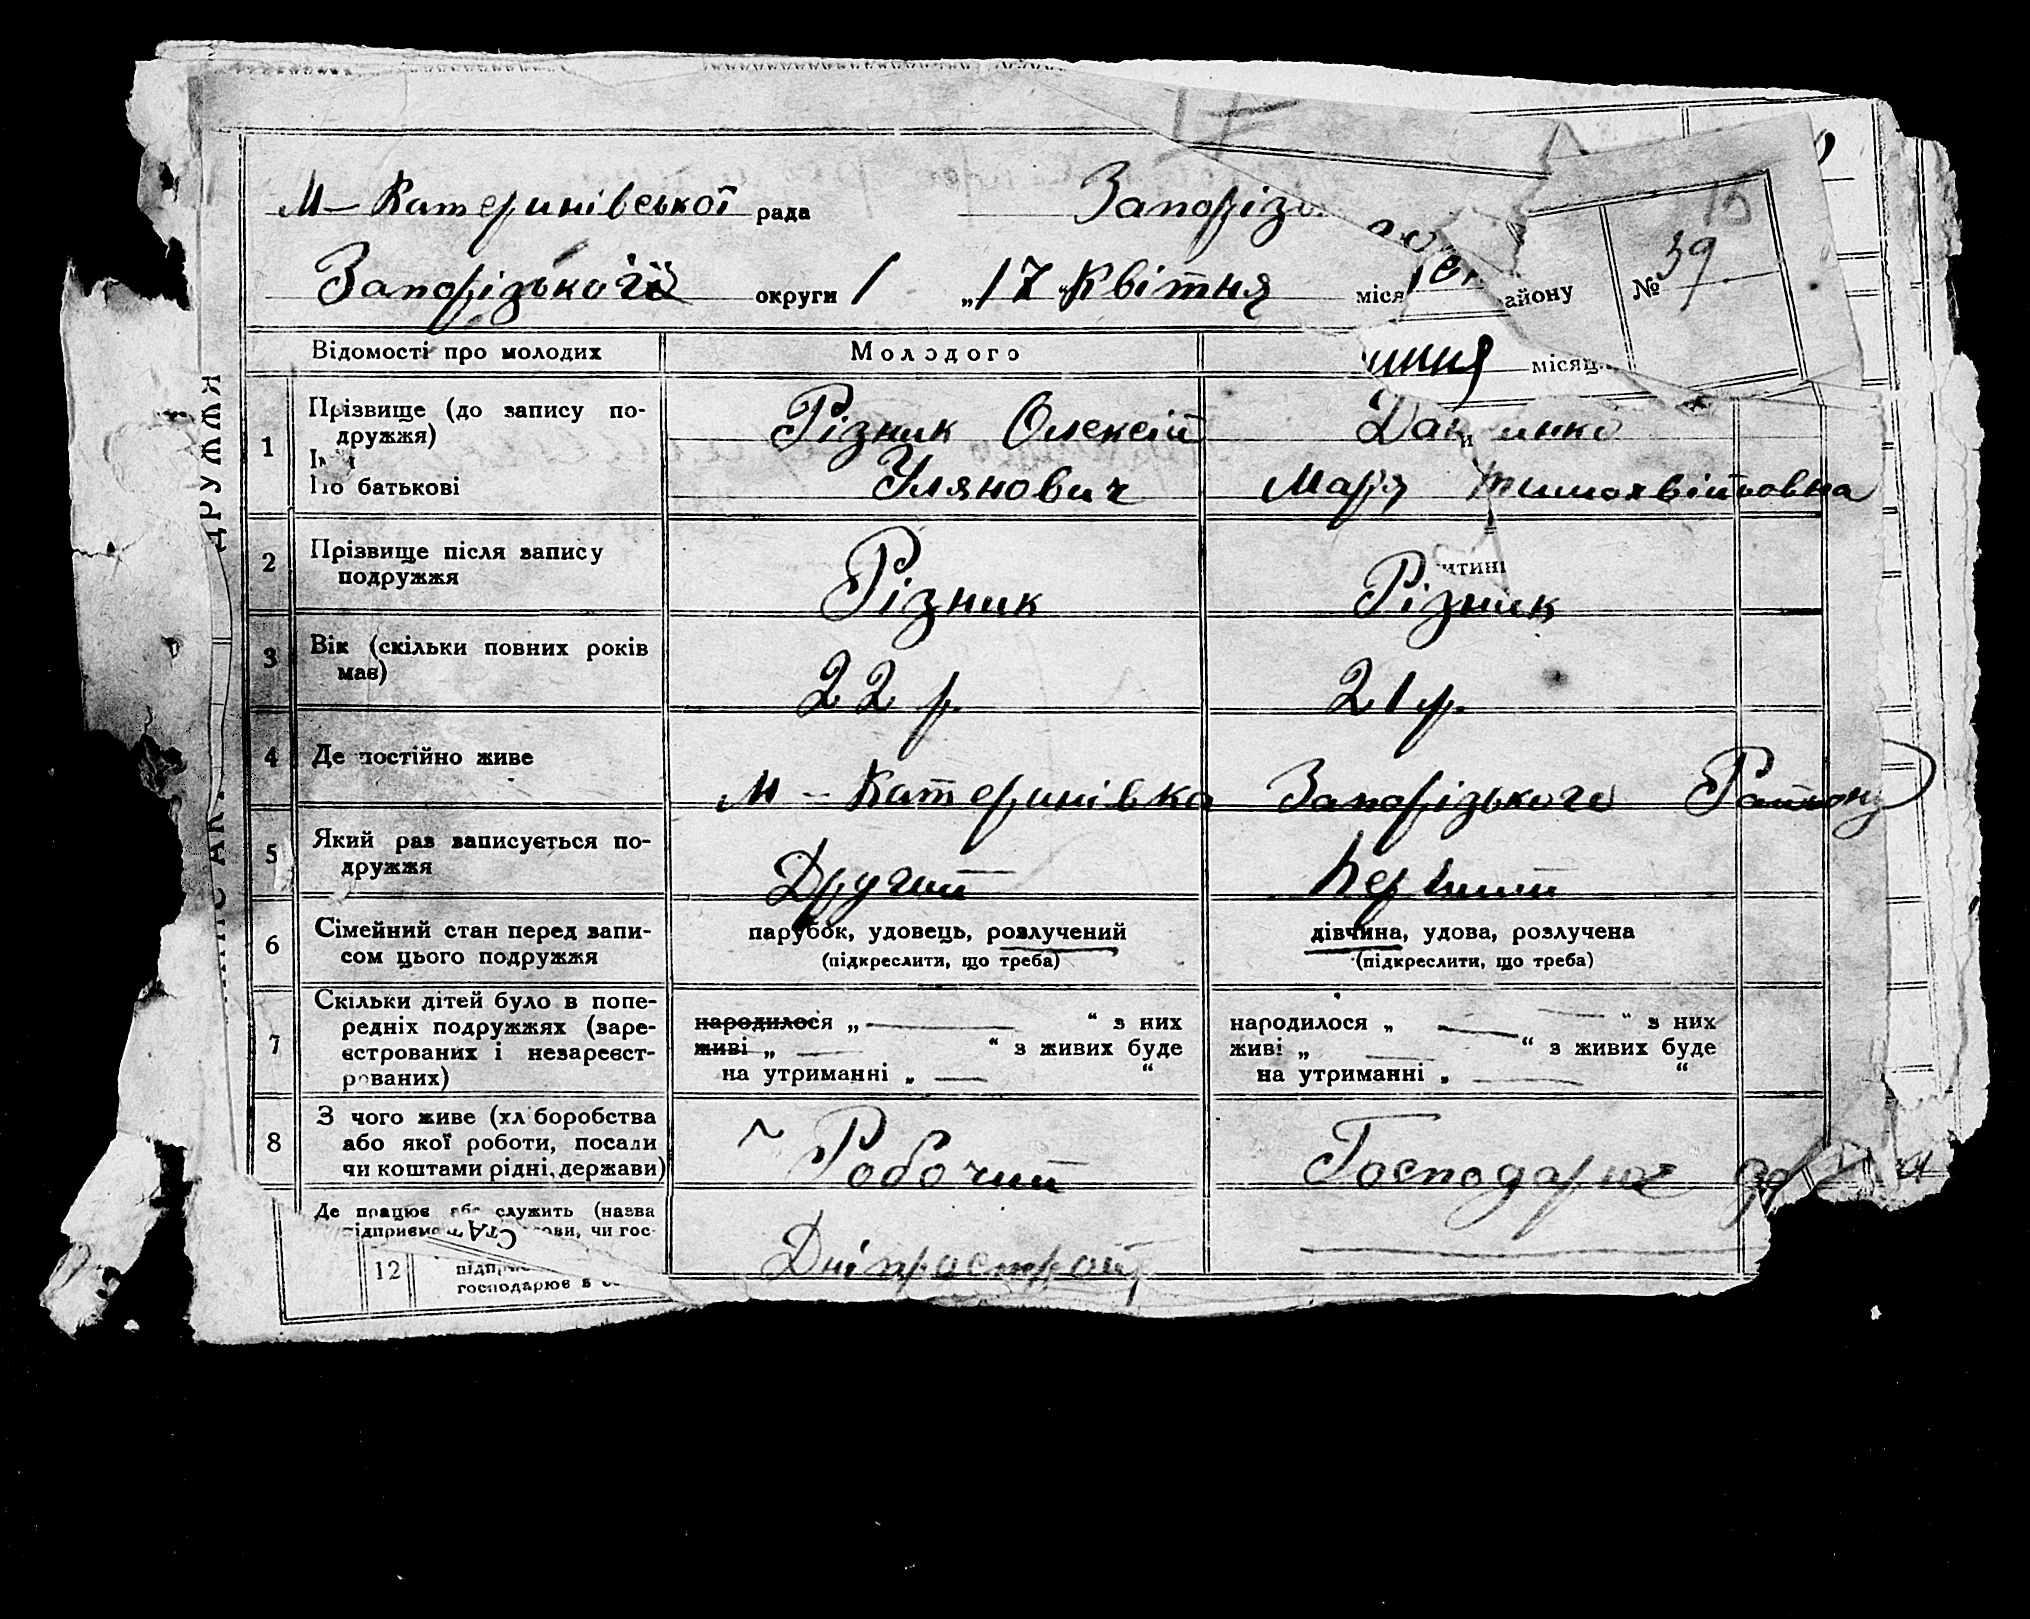 М-Катеринівської рада Запорізь
Запорізького округи 17 Квітня міся
айону
№ 39
місяц
Відомості про молодих Молодого
1 Прізвище (до запису по-
дружжя)
По батькові
Різник Олексій
Улянович Марія Тимохвійовна
2 Прізвище після запису
подружжя
Різник Різник
3 Вік (скільки повних років
має)
22 р. 21 р.
4 Де постійно живе
М-Катеринівка Запорізького Району
5 Який раз записується по-
дружжя
Другий Перший
6 Сімейний стан перед запи-
сом цього подружжя
парубок, удовець, розлучений
(підкреслити, що треба)
дівчина, удова, розлучена
(підкреслити, що треба)
7 Скільки дітей було в попе-
редніх подружжях (заре-
єстрованих і незареєст-
рованих)
народилося „ “ з них
живі „ “ з живих буде
на утриманні „ “
народилося „ “ з них
живі „ “ з живих буде
на утриманні „ “
8 З чого живе (хліборобства
або якої роботи, посади
чи коштами рідні, держави)
Робочий Господарює
Де працює або служить (назва
чи гос-
12
господарює в
ДРУЖЖЯ